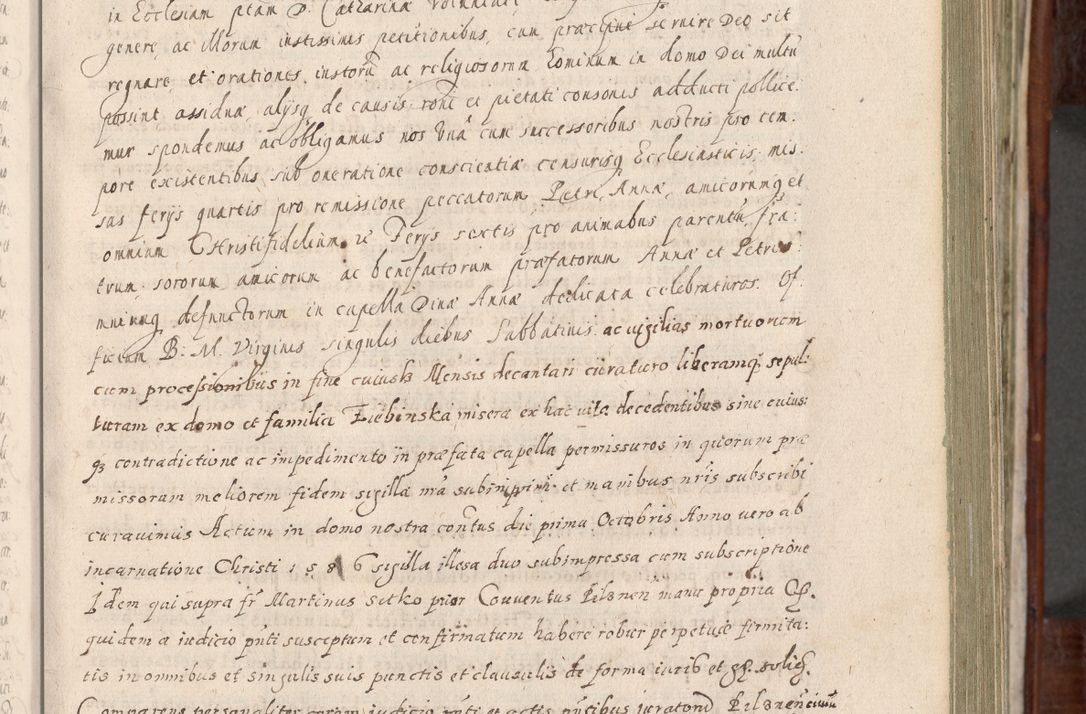 in Ecclesiam ptam D. Catharinæ
genere, ac illorum iustissimis petitionibus, cum præcipue servire Deo sit
regnare, et orationes iustorũ ac religiosorum hominum in domo Dei multũ
possint assiduæ, alijsq de causis roni et pietati consonis adducti pollice:
mur spondemus ac obligamus nos Vna cum successoribus nostris pro tem:
pore existentibus sub oneratione conscientiæ censurisq Ecclesiasticis, mis:
sas ferijs quartis pro remissione peccatorum Petri, Annæ, amicorumq et
omnium Christifidelium, Ferijs sextis pro animabus parentũ, fra:
trum, sororum, amicorum ac benefactorum præfatorum Annæ et Petri
mniumq defunctorum in capella Diuæ Annæ dedicata celebraturos. Of:
ficium B: M. Virginis singulis diebus Sabbatinis, ac vigilias mortuorum
cum processionibus in fine cuiusq Mensis decantari curaturo liberamq sepul:
turam ex domo et familia Ziebinska, miseræ ex hac vita decedentibus sine cuius:
q contradictione ac impedimento in præfata capella permissuros in quorum præ
missorum meliorem fidem sigilla nra subimprimi et manibus nris subscribi
curavimus Actum in domo nostra contus die prima Octobris Anno vero ab
incarnatione Christi 1 5 8 6 sigilla illesa duo subimpressa cum subscriptione
Idem qui supra fr Martinus Sitko prior Conventus Pilsnen manu propria
quidem a iudicio pnti susceptum et confirmatum habere robur perpetuæ firmita:
tis in omnibus et singulis suis punctis et clausulis de forma iuris et
Comparens personaliter coram iudicio pnti et actis pntibus iuratond Pilsnencium